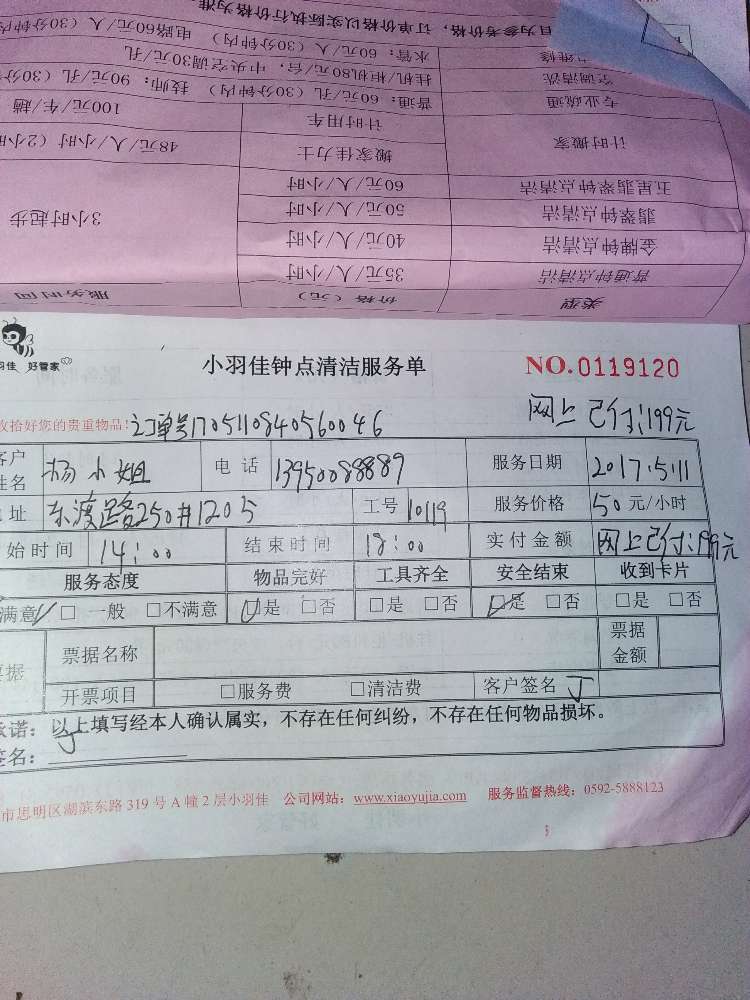 且为参考价格,订单价格以实际执行价格为准
水管:60元/人(30分钟内) 电路60元/人(30分
空调清洗 挂机/柜机80元/台,中央空调30元/孔
专业疏通 普通:60元/孔(30分钟内) 技师:90元/孔(30分
计时搬家 计时用车 100元/车/趟
搬家佳力士 48元/人/小时(2小时
五星翡翠钟点清洁 60元/人/小时
翡翠钟点清洁 50元/人/小时 3小时起步
金牌钟点清洁 40元/人/小时
普通钟点清洁 35元/人/小时
类型 价格(元) 服务时间
羽佳 好管家
小羽佳钟点清洁服务单 NO.0119120
收拾好您的贵重物品! 订单号1705110840560046 网上已付:199元
客户姓名 杨小姐 电话 13950088889 服务日期 2017.5.11
址 东渡路250#1205 工号 10119 服务价格 50元/小时
始时间 14:00 结束时间 18:00 实付金额 网上已付:199元
服务态度 物品完好 工具齐全 安全结束 收到卡片
满意 □一般 □不满意 □是 □否 □是 □否 □是 □否 □是 □否
票据 票据名称 票据金额
开票项目 □服务费 □清洁费 客户签名
承诺:以上填写经本人确认属实,不存在任何纠纷,不存在任何物品损坏。
签名:
市思明区湖滨东路319号A幢2层小羽佳 公司网站:www.xiaoyujia.com 服务监督热线:0592-5888123